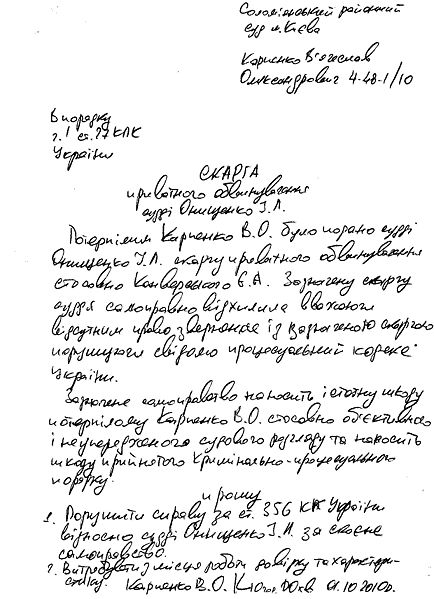 Солом'янський районний
суд м. Києва
Карпенко В'ячеслав
Олександрович 4-48-1/10
В порядку
ч. 1 ст. 27 КПК
України
СКАРГА
приватного обвинувачення
судді Онищенко І.Л.
Потерпілим Карпенко В.О. було подано судді
Онищенко І.Л. скаргу приватного обвинувачення
стосовно Конверського Є.А. Зазначену скаргу
суддя самоправно відхилила вважаючи
відсутним право звернення із зазначеною скаргою
порушуючи свідомо процесуальний кодекс
України.
Зазначене самоправство наносить істотну шкоду
потерпілому Карпенко В.О. стосовно об'єктивного
і неупередженого судового розгляду та наносить
шкоду прийнятого кримінально-процесуального
порядку.
прошу
1. Порушити справу за ст. 356 КК України
відносно судді Онищенко І.Л. за скоєне
самоправство.
2. Витребувати з місця роботи довірку та характери-
стику. Карпенко В.О. 01.10.2010р.